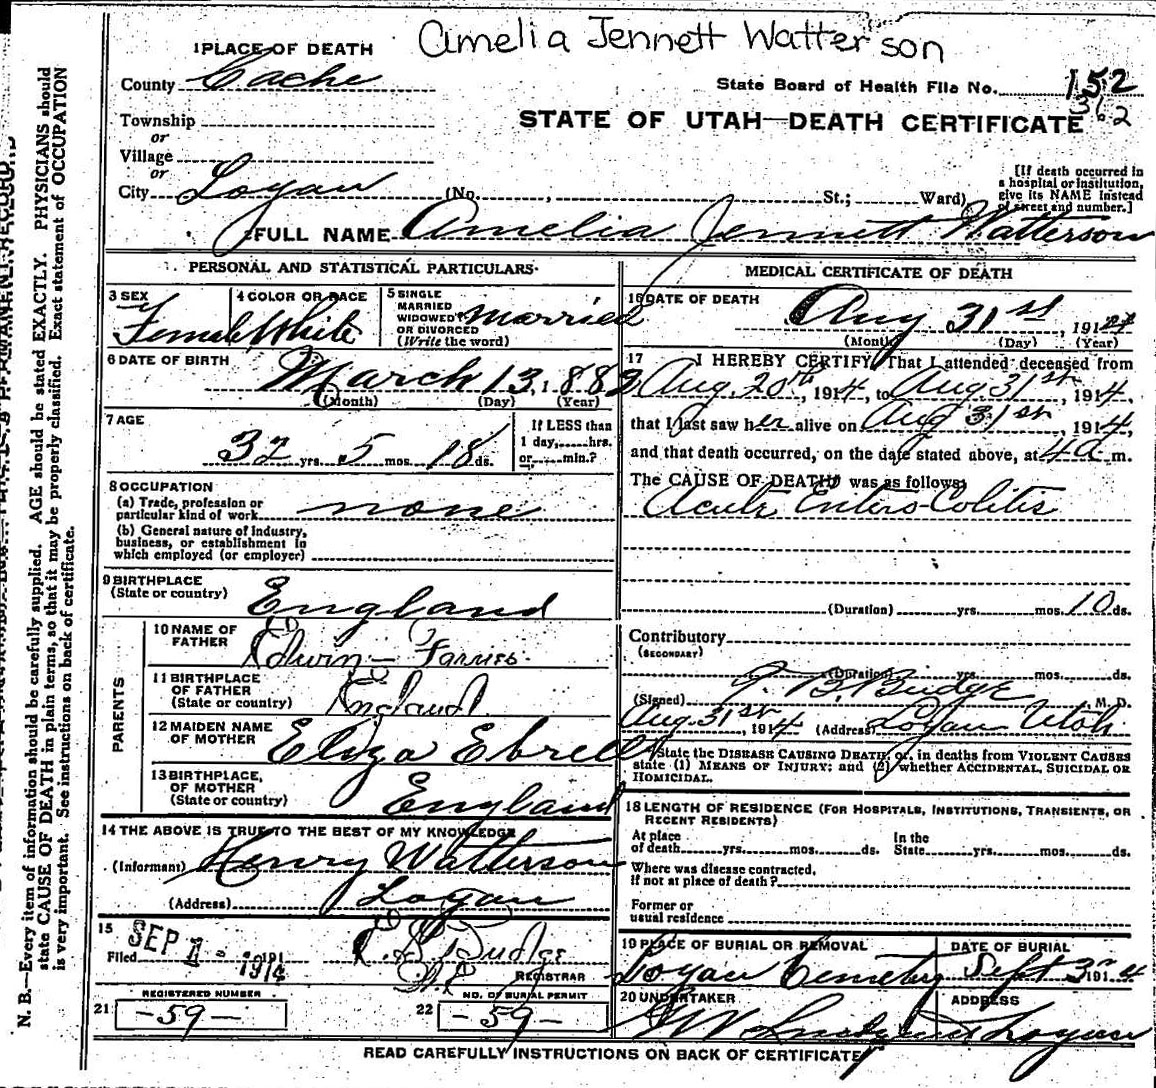 Amelia Jennett Watterson
1 PLACE OF DEATH
County Cache
State Board of Health File No. 152
362
Township
or
Village
or
City Logan (No. , St.; Ward)
STATE OF UTAH—DEATH CERTIFICATE
[If death occurred in a hospital or institution, give its NAME instead of street and number.]
FULL NAME Amelia Jennett Watterson
PERSONAL AND STATISTICAL PARTICULARS
3 SEX
Female
4 COLOR OR RACE
White
5 SINGLE
MARRIED
WIDOWED
OR DIVORCED
(Write the word)
Married
6 DATE OF BIRTH
March 13, 188
(Month) (Day) (Year)
7 AGE
32 yrs. 5 mos. 18 ds.
If LESS than
1 day, hrs.
or min.?
8 OCCUPATION
(a) Trade, profession or
particular kind of work none
(b) General nature of industry,
business, or establishment in
which employed (or employer)
9 BIRTHPLACE
(State or country) England
PARENTS
10 NAME OF
FATHER Edwin
11 BIRTHPLACE
OF FATHER
(State or country) England
12 MAIDEN NAME
OF MOTHER Eliza
13 BIRTHPLACE,
OF MOTHER
(State or country) England
14 THE ABOVE IS TRUE TO THE BEST OF MY KNOWLEDGE
(Informant) Henry Watterson
(Address) Logan
15
Filed SEP 1 - 1914 191
Budge
REGISTRAR
REGISTERED NUMBER
21 -59-
NO. OF BURIAL PERMIT
22 -59-
MEDICAL CERTIFICATE OF DEATH
16 DATE OF DEATH
Aug 31st, 1914
(Month) (Day) (Year)
17 I HEREBY CERTIFY, That I attended deceased from
Aug. 20th, 1914, to Aug. 31st, 1914,
that I last saw her alive on Aug 31st, 1914,
and that death occurred, on the date stated above, at 4 a m.
The CAUSE OF DEATH was as follows:
Acute Entero-Colitis
(Duration) yrs. mos. 10 ds.
Contributory
(SECONDARY)
(Duration) yrs. mos. ds.
(Signed) Budge M. D.
Aug. 31st, 1914 (Address) Logan Utah
State the DISEASE CAUSING DEATH, or, in deaths from VIOLENT CAUSES
state (1) MEANS OF INJURY; and (2) whether ACCIDENTAL, SUICIDAL OR
HOMICIDAL.
18 LENGTH OF RESIDENCE (FOR HOSPITALS, INSTITUTIONS, TRANSIENTS, OR
RECENT RESIDENTS)
At place
of death yrs. mos. ds.
In the
State yrs. mos. ds.
Where was disease contracted,
if not at place of death?
Former or
usual residence
19 PLACE OF BURIAL OR REMOVAL
Logan Cemetery
DATE OF BURIAL
Sept 3 1914
20 UNDERTAKER
ADDRESS
Logan
READ CAREFULLY INSTRUCTIONS ON BACK OF CERTIFICATE
N. B.—Every item of information should be carefully supplied. AGE should be stated EXACTLY. PHYSICIANS should
state CAUSE OF DEATH in plain terms, so that it may be properly classified. Exact statement of OCCUPATION
is very important. See instructions on back of certificate.